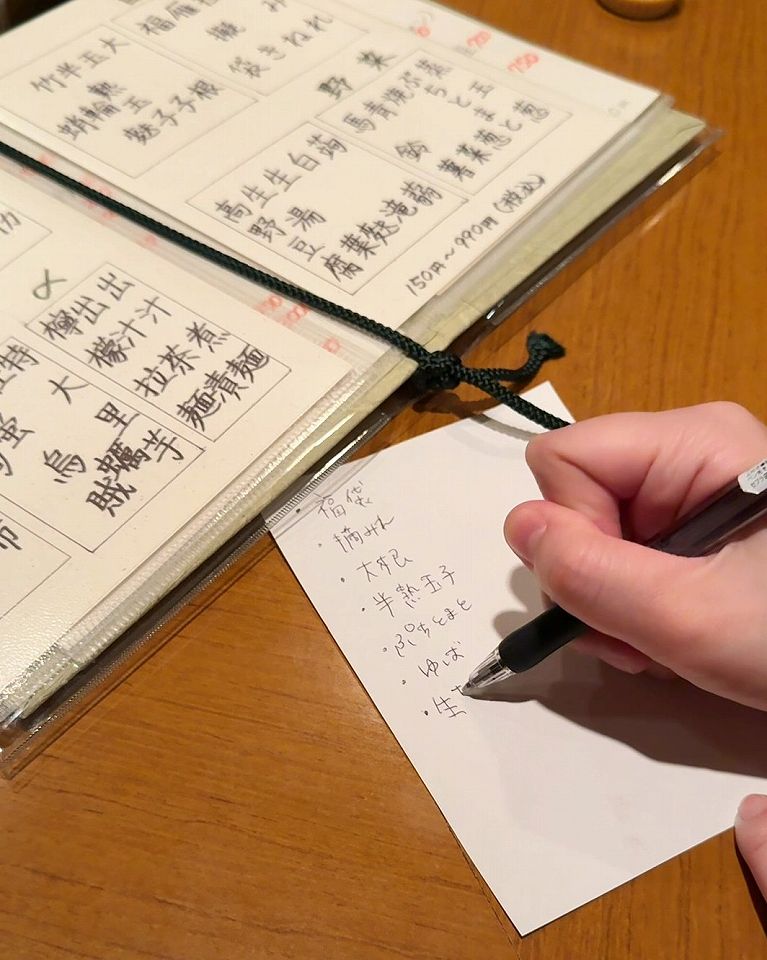 大根
玉子
半熟玉子
竹輪麩
野菜
蒸玉葱
ぷちとまと
焼葱
青菜
馬鈴薯
蒟蒻
白滝
生麩
生湯葉
高野豆腐
150円～990円（税込）
出汁煮麺
出汁茶漬
檸檬拉麺
里芋
・福袋
・摘みれ
・大根
・半熟玉子
・ぷちとまと
・ゆば
・生